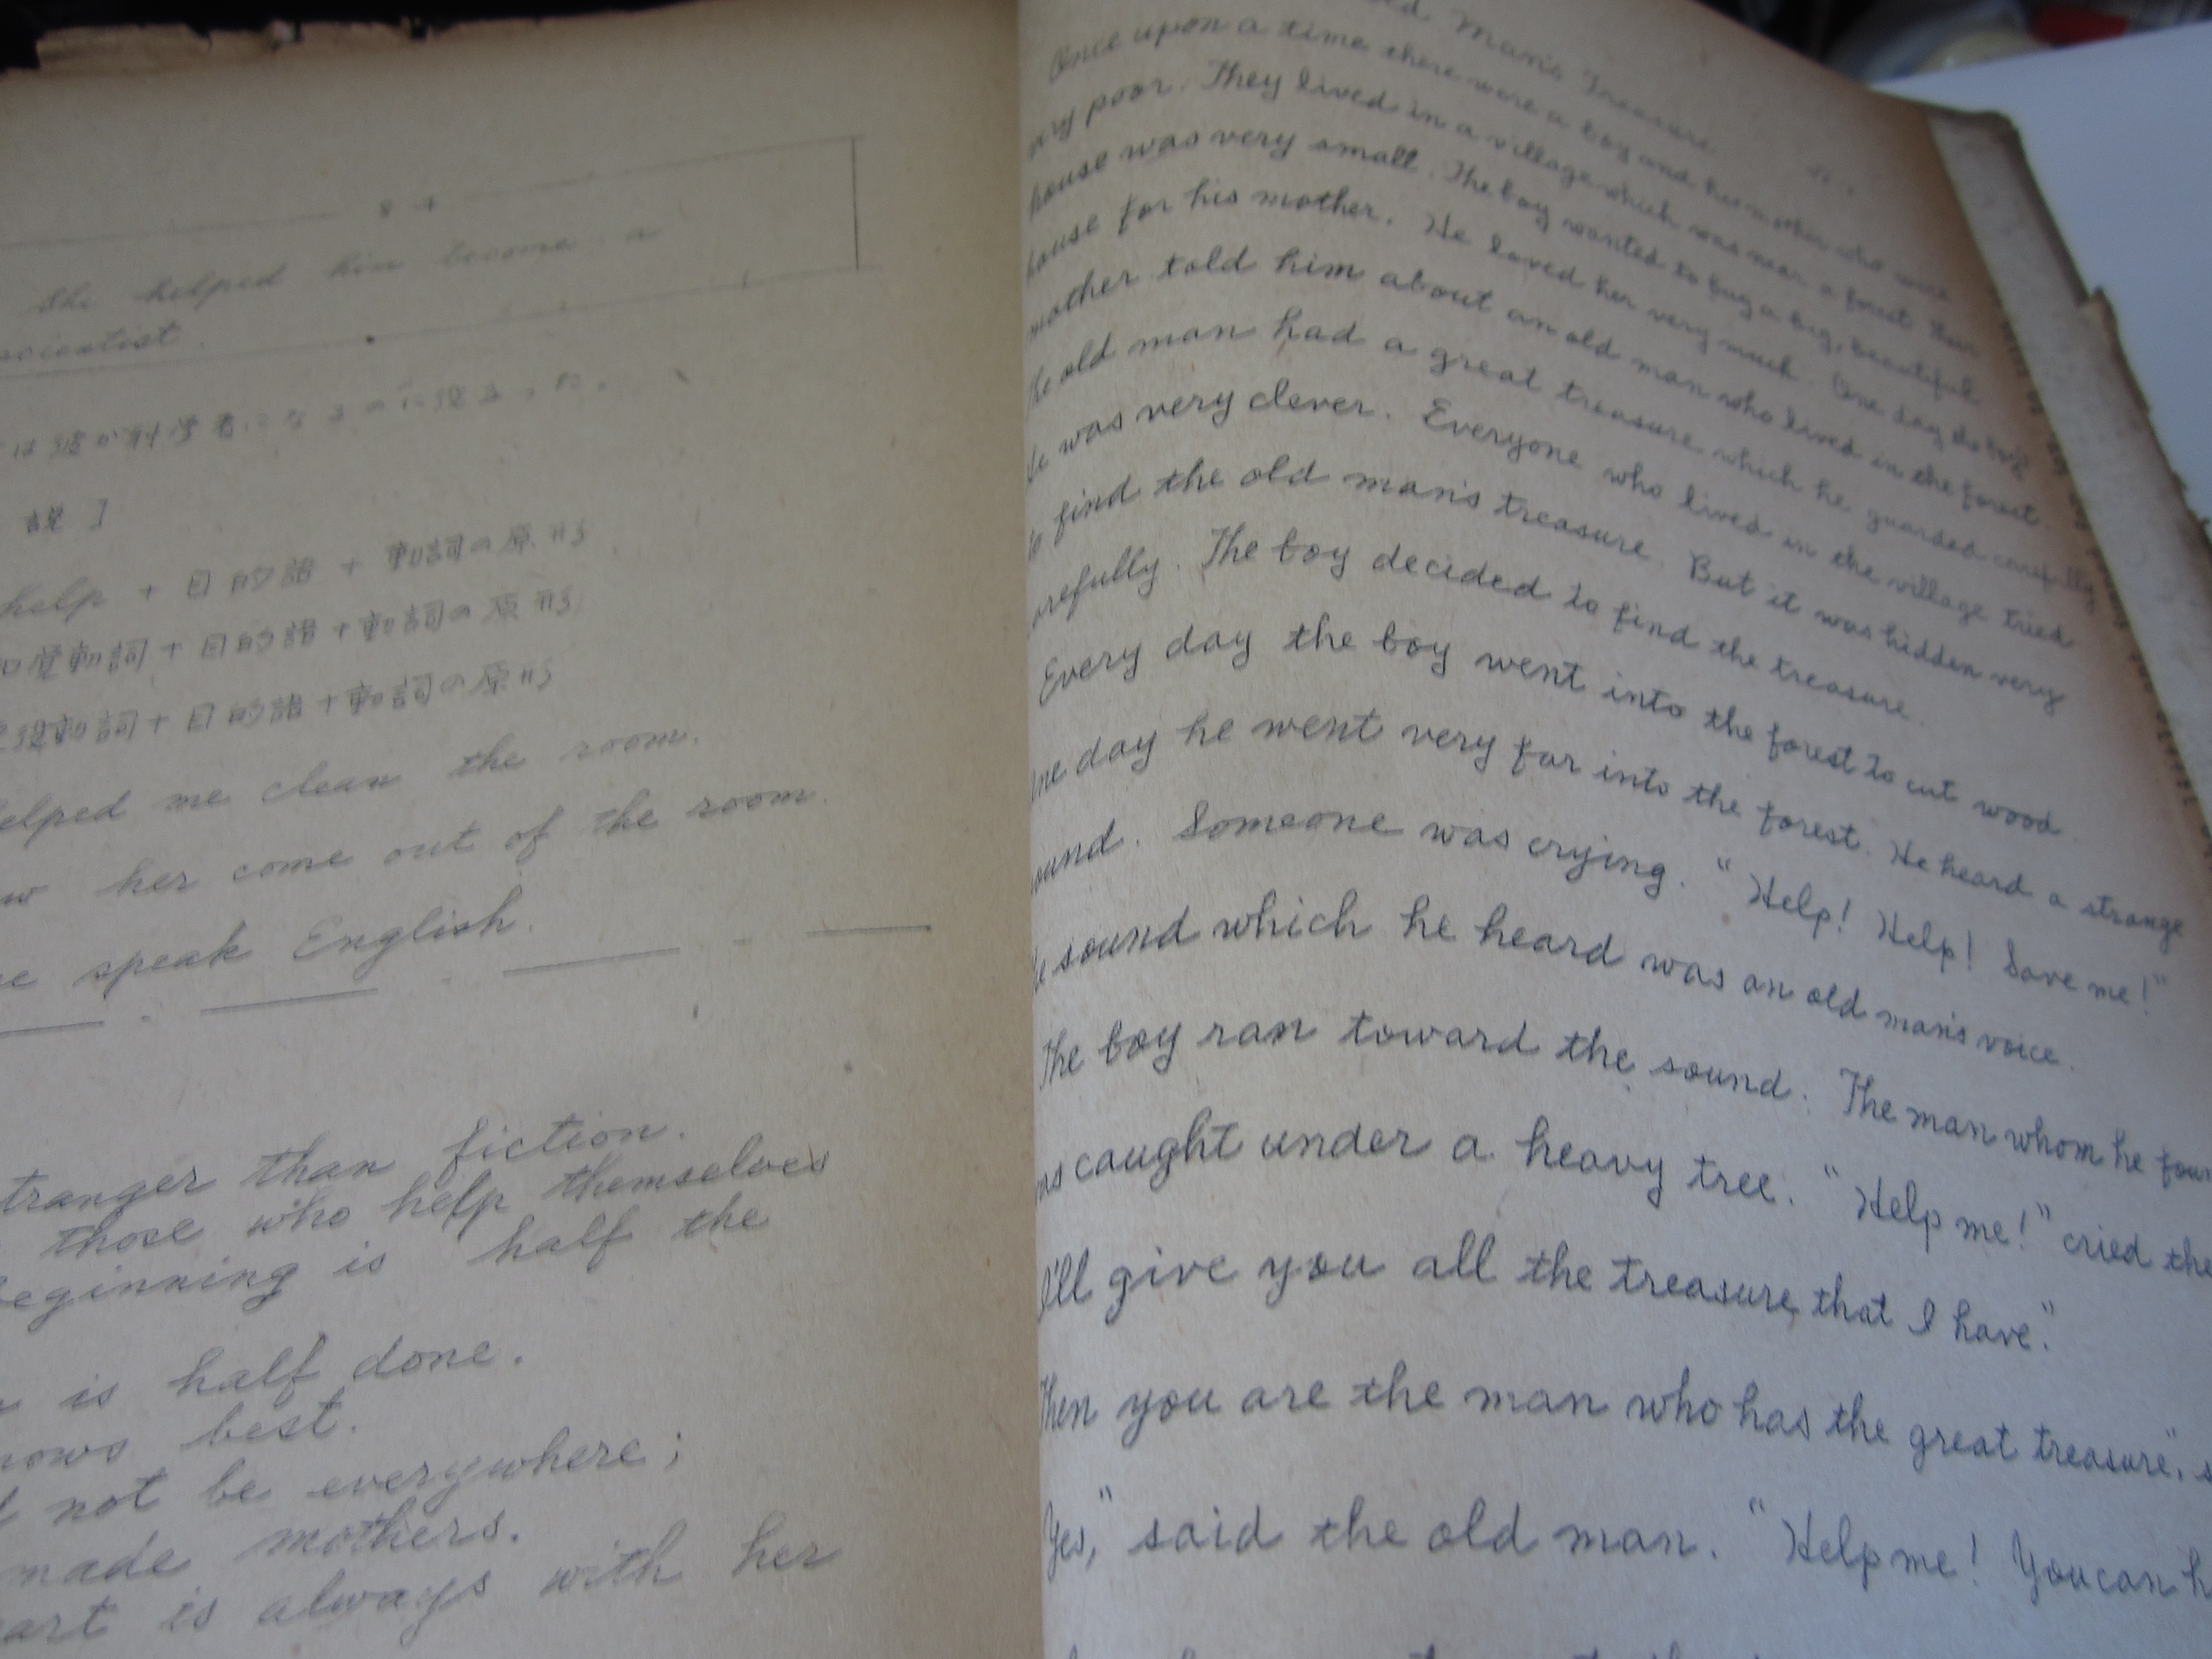 She helped him become a
scientist.
は彼が科学者になるのに役立った。
説]
help + 目的語 + 動詞の原形
知覚動詞 + 目的語 + 動詞の原形
使役動詞 + 目的語 + 動詞の原形
helped me clean the room.
her come out of the room.
speak English.
stranger than fiction.
those who help themselves
beginning is half the
is half done.
knows best.
not be everywhere;
made mothers.
heart is always with her
Man's Treasure
Once upon a time there were a boy and his mother who were
very poor. They lived in a village which was near a forest. Their
house was very small. The boy wanted to buy a big, beautiful
house for his mother. He loved her very much. One day the boy's
mother told him about an old man who lived in the forest.
The old man had a great treasure which he guarded carefully.
He was very clever. Everyone who lived in the village tried
to find the old man's treasure. But it was hidden very
carefully. The boy decided to find the treasure.
Every day the boy went into the forest to cut wood.
One day he went very far into the forest. He heard a strange
sound. Someone was crying. "Help! Help! Save me!"
The sound which he heard was an old man's voice.
The boy ran toward the sound. The man whom he foun
was caught under a heavy tree. "Help me!" cried the
I'll give you all the treasure that I have."
Then you are the man who has the great treasure", s
Yes," said the old man. "Help me! You can h